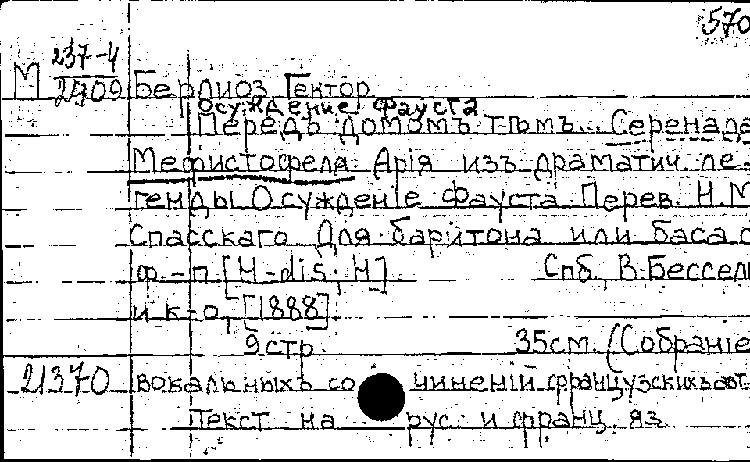 570
М 237-4
2909 Берлиоз Гектор
Осуждение Фауста
Передъ домомъ тѣмъ... Серенада
Мефистофеля. Арія изъ драматич. ле-
генды Осужденіе Фауста. Перев. Н.М.
Спасскаго. Для баритона или баса с
ф.-п. [H-dis; H] Спб, В. Бессель
и к-о, [1888].
9 стр. 35см. (Собраніе
21370 вокальныхъ сочиненій французскихъ авт.
Текст на рус. и франц. яз.